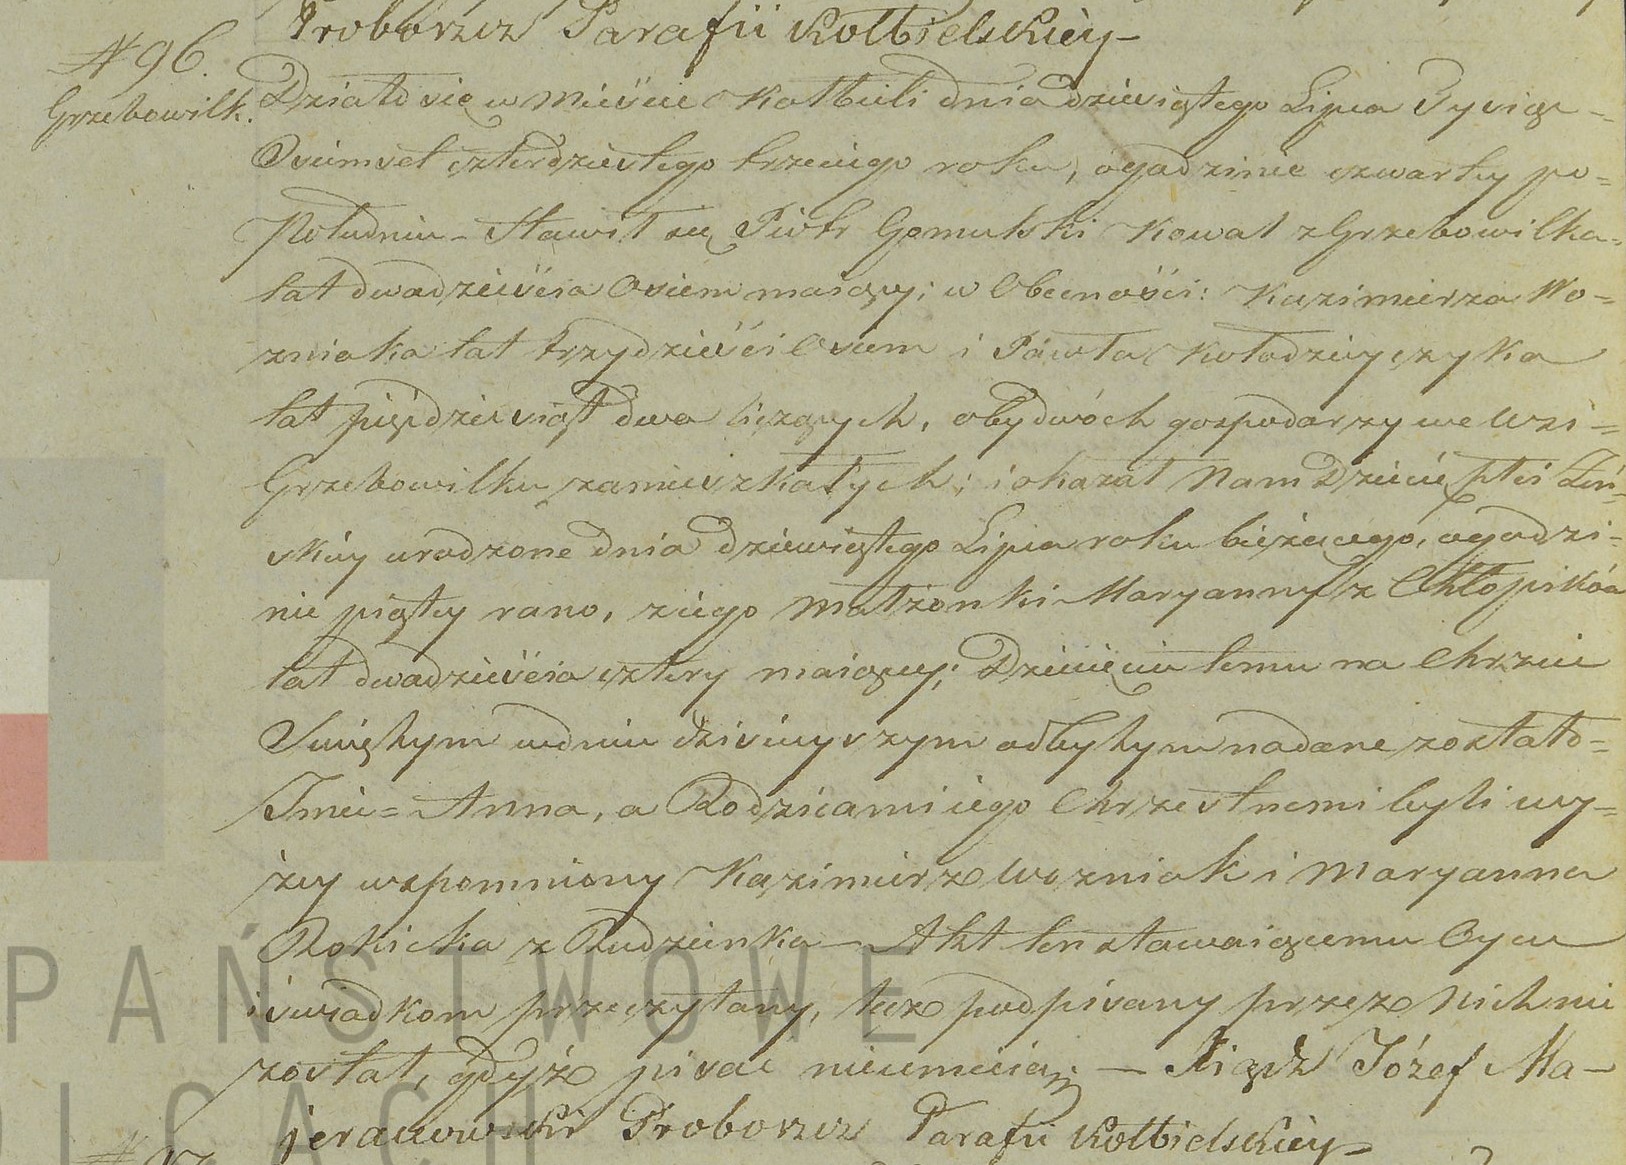 Proboszcz Parafii Kołbielskiey
N 96.
Grzebowilk.
Działo się w Mieście Kołbieli dnia dziewiątego Lipca Tysiąc -
Osiemset czterdziestego trzeciego roku, o godzinie czwartey po-
Południu - Stawił się Piotr Gomulski Kowal z Grzebowilka
lat dwadzieścia Osiem maiący; w Obecności: Kazimierza Wo-
zniaka lat trzydzieści Osiem i Pawła Kołodzieyczyka
lat pięćdziesiąt dwa liczących, obydwóch gospodarzy we wsi -
Grzebowilku zamieszkałych; i okazał Nam Dziecię płci Żeń-
skiey urodzone dnia dziewiątego Lipca roku bieżącego, o godzi-
nie piątey rano, z iego Małżonki Maryanny z Chłopików
lat dwadzieścia cztery maiącey; Dziecięciu temu na Chrzcie
Swiętym w dniu dzisieyszym odbytym nadane zostało =
Imie = Anna, a Rodzicami iego Chrzestnemi byli wy-
żey wspomniony Kazimierz Wozniak i Maryanna
Rokicka z Rudzienka - Akt ten stawaiącemu Oycu
i świadkom przeczytany, lecz podpisany przez Nich nie
został, gdyż pisać nieumieią; - Xiądz Józef Ma-
jeranowski Proboszcz Parafii Kołbielskiey -
N 97
PAŃSTWOWE
OLCACH